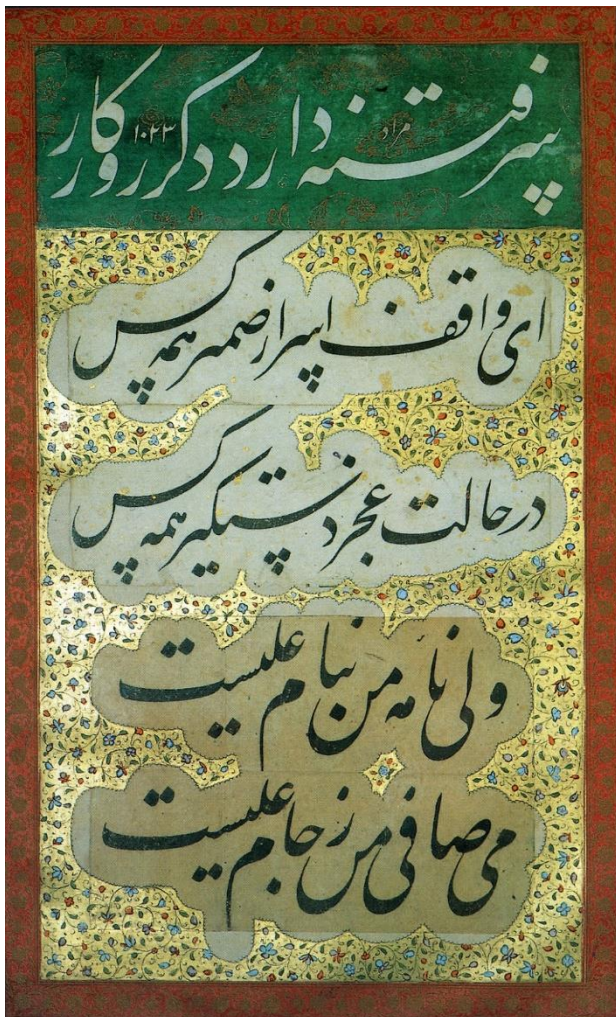 سر فتنه دارد دکر روزکار
مراد
۱۰۲۳
ای واقف اسرار ضمیر همه کس
در حالت عجز دستکیر همه کس
ولی نامه من بنام علیست
می صافی من ز جام علیست